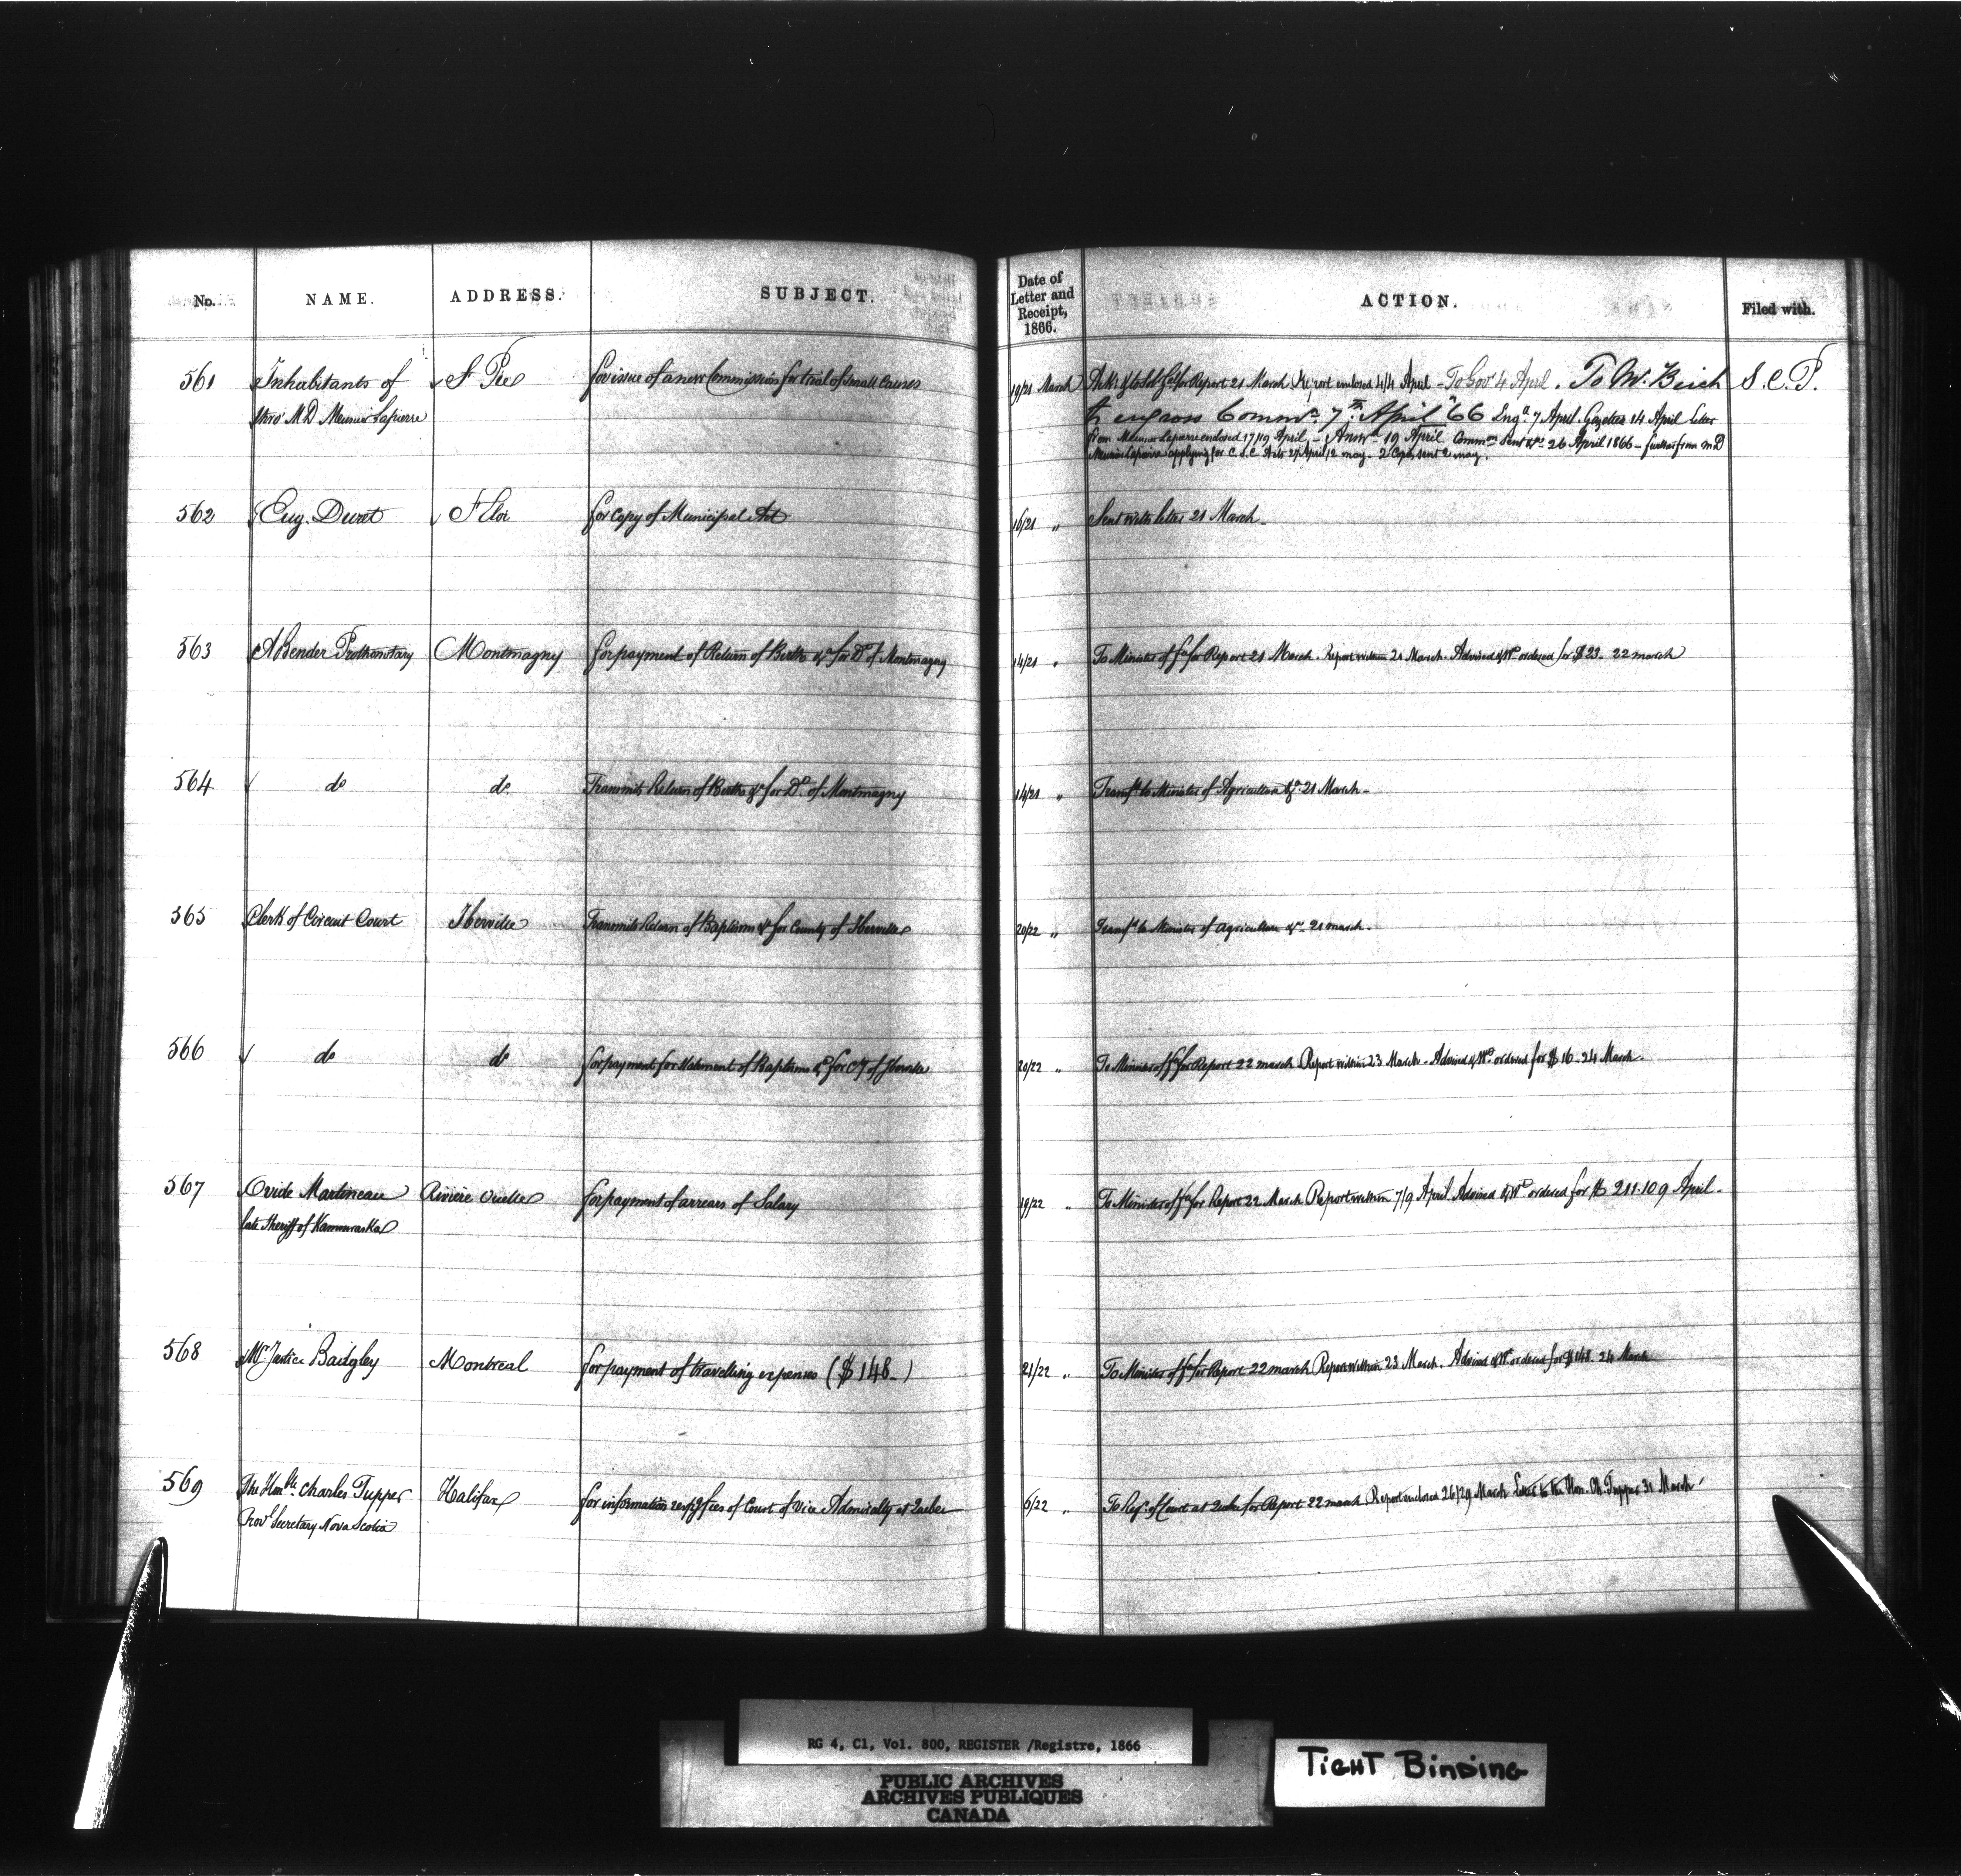 No. NAME. ADDRESS. SUBJECT. Date of Letter and Receipt, 1866. ACTION. Filed with.
561 Inhabitants of St Pie for issue of a new Commission for trial of small Causes 19/21 March for Report 21 March. Report enclosed 4/4 April - To Gov 4 April. To W. Birch S. C. P.
thro' M D Meunier Lapierre to engross Commn. 7th April "66 Engd 7 April. Gazetted 14 April Letter
from Meunier Lapierre enclosed 17/19 April - Answd 19 April Commn sent &c 26 April 1866 - further from M D
Meunier Lapierre applying for C. S. C. Acts 27 April/2 May - 2 Copies sent 2 May.
562 Eug. Duvat St Eloi for Copy of Municipal Act 16/21 " Sent with letter 21 March
563 A Bender Prothonotary Montmagny for payment of Return of Births &c for Dt of Montmagny 14/21 " To Minister of for Report 21 March. Report within 21 March. Advised & Wt ordered for $23. 22 March
564 do do Transmits Return of Births &c for Dt. of Montmagny 14/21 " Transfd to Minister of Agriculture &c 21 March -
565 Clerk of Circuit Court Iberville Transmits Return of Baptisms &c for County of Iberville 20/22 " Transfd to Minister of Agriculture &c 21 March.
566 do do for payment for Statement of Baptisms &c for Cty of Iberville 20/22 " To Minister of for Report 22 March Report within 23 March - Advised & Wt ordered for $16 - 24 March
567 Ovide Martineau Rivière Ouelle for payment of arrears of Salary 19/22 " To Minister of for Report 22 March Report within 7/9 April. Advised & Wt ordered for $211.10 9 April.
late Sheriff of Kamouraska
568 Mr Justice Badgley Montreal for payment of travelling expenses ($148 -) 21/22 " To Minister of for Report 22 March Report within 23 March. Advised & Wt ordered for $148. 24 March
569 The Honble Charles Tupper Halifax for information respg fees of Court of Vice Admiralty at Quebec 6/22 " To Regr of Court at Quebec for Report 22 March Report enclosed 26/29 March Letter to the Hon. Ch. Tupper 31 March
Provl Secretary Nova Scotia
RG 4, C1, Vol. 800, REGISTER /Registre, 1866
PUBLIC ARCHIVES
ARCHIVES PUBLIQUES
CANADA
TIGHT BINDING